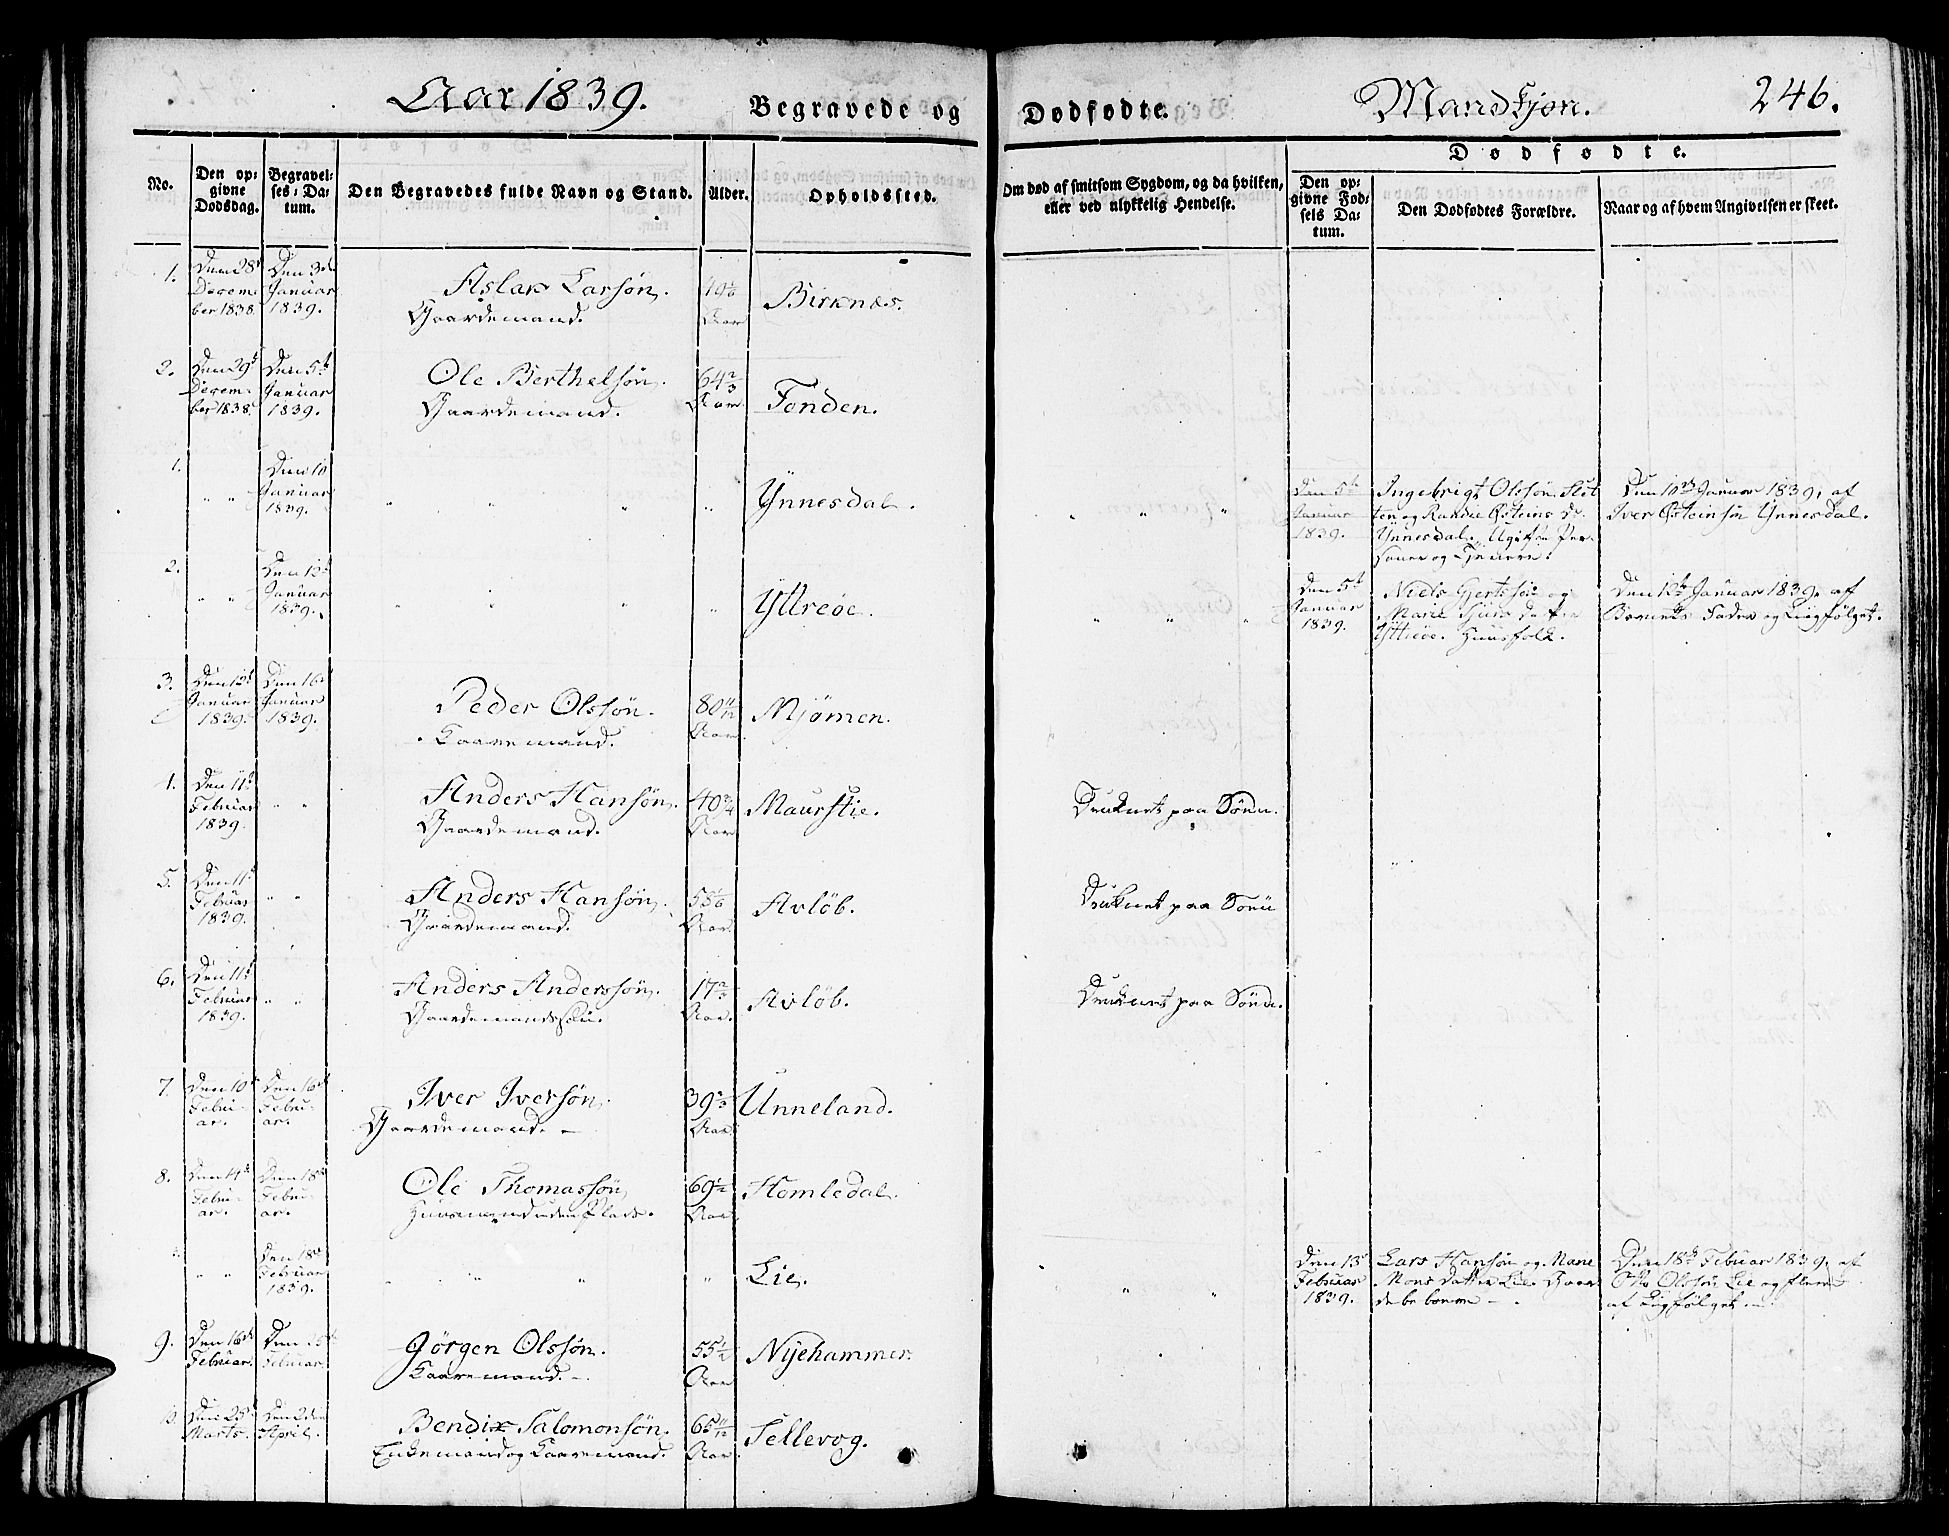 Aar 1839. Begravede og Dödfödte. Mandkjøn. 246.
No.
Den opgivne Dödsdag.
Begravelses-Datum.
Den Begravedes fulde Navn og Stand.
Alder.
Opholdssted.
Om död af smitsom Sygdom, og da hvilken, eller ved ulykkelig Hendelse.
Dödfödte.
Den opgivne Födsels Datum.
Den Dödfödtes Forældre.
Naar og af hvem Angivelsen er skeet.
1. Den 28de December 1838. Den 3die Januar 1839. Aslak Larsøn. Gaardemand. 49 Aar Birknæs.
2. Den 29de December 1838. Den 5te Januar 1839. Ole Berthelsøn. Gaardemand. 64 2/3 Aar Fonden.
1. " " Den 10 Januar 1839. " " " " Ynnesdal. " " "
Den 5te Januar 1839.
Ingebrigt Olssøn
ten og Randie Østeins D.
Ynnesdal. Ugifte Per-
soner og Tjenere.
Den 10de Januar 1839, af
Iver Østeinsøn Ynnesdal.
2. " " Den 12te Januar 1839. " " " " Yttreøe. " " "
Den 5te Januar 1839.
Niels Gjertssøn og
Marie
Yttreøe. Huusfolk.
Den 12te Januar 1839, af
Barnets Fader og Liigfølget.
3. Den 12te Januar 1839. Den 16de Januar 1839. Peder Olssøn. Kaaremand. 80 11/12 Aar Mjømen.
4. Den 11te Februar 1839. " " Anders Hansøn. Gaardemand. 40 3/4 Aar Maurstie. Druknet paa Søen.
5. Den 11te Februar 1839. " " Anders Hansøn. Gaardemand. 55 1/6 Aar. Avløb. Druknet paa Søen
6. Den 11te Februar 1839. " " Anders Anderssøn. Gaardemandssøn. 17 2/3 Aar. Avløb. Druknet paa Søen.
7. Den 10de Februar. Den 16de Februar. Iver Iversøn. Gaardemand. 39 2/3 Aar. Unneland.
8. Den 14de Februar. Den 18de Februar. Ole Thomassøn, Huusmand uden Plads. 69 1/2 Aar. Homledal.
3. " " Den 18de Februar 1839. " " " " Lie. " "
Den 13de Februar 1839.
Lars Hansøn og Marie
Mons datter Lie. Gaar-
debeboere.
Den 18de Februar 1839, af
Olssøn Lie og flere
af Ligfølget.
9. Den 16de Februar. Den Februar. Jörgen Olssøn. Kaaremand. 55 1/2 Aar Nyehammer.
10. Den 25de Marts. Den 2den April. Bendix Salomonsøn. Enkemand og Kaaremand. 65 11/12 Aar. Tellevog.